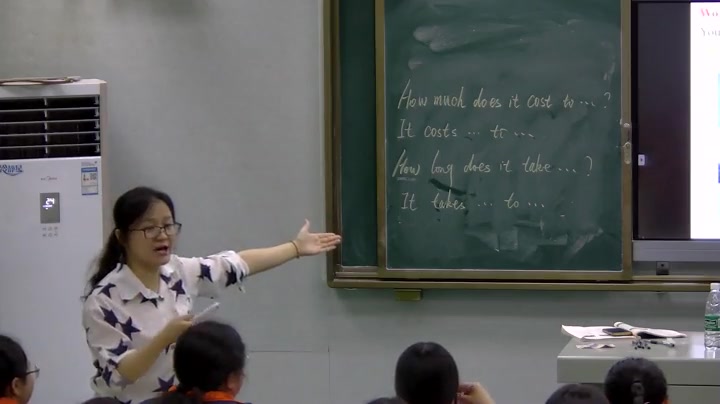 How much does it cost to ... ?
It costs ... to ...
How long does it take ... ?
It takes ... to ...
Wo
You